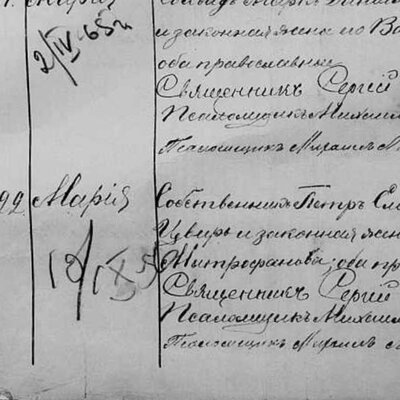 2/IV-65г
и законная жена его Ва
оба православные
Священникъ Сергій
Псаломщикъ Михаил
Псаломщикъ Михаилъ
22 Марія
Собственникъ Петръ Сл
и законная жен
Митрофанова; оба пр
18/IX 5
Священникъ Сергій
Псаломщикъ Михаил
Псаломщикъ Михаилъ